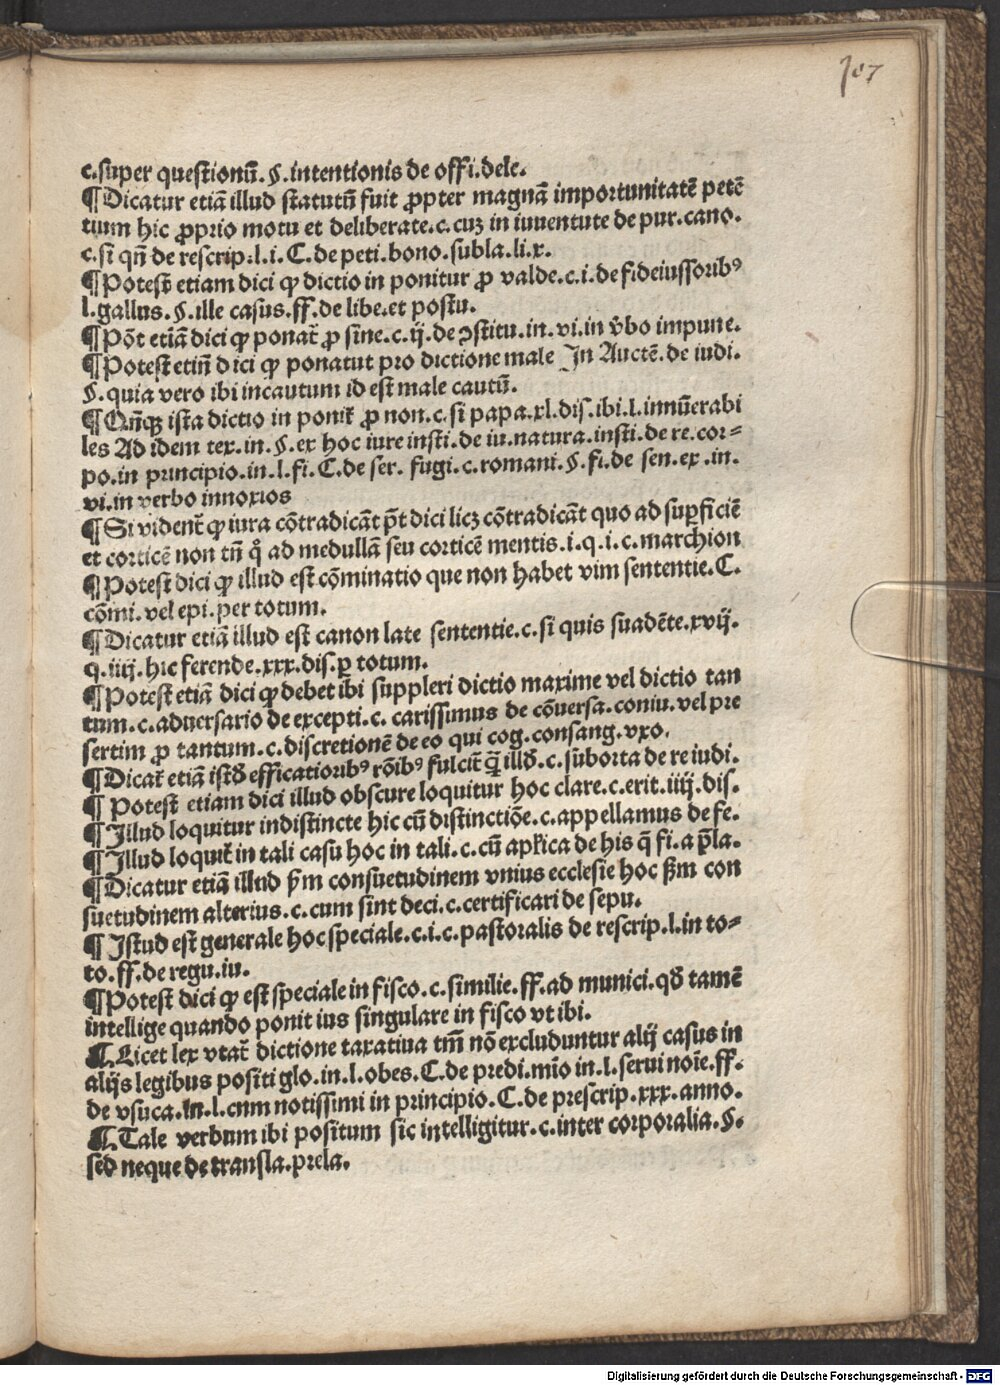 107
c.super questionū.§.intentionis de offi.dele.
¶Dicatur etiā illud statutū fuit ꝓpter magnā importunitatē petē
tium hic ꝓprio motu et deliberate.c.cuꝫ in iuuentute de pur.cano.
c.si qn̄ de rescrip.l.i.C.de peti.bono.subla.li.x.
¶Potest etiam dici ꝙ dictio in ponitur ꝓ valde.c.i.de fideiussoribꝰ
l.gallus.§.ille casus.ff.de libe.et postu.
¶Pōt etiā dici ꝙ ponat᷑ ꝓ sine.c.ij.de ꝯstitu.in.vi.in v̄bo impune.
¶Potest etin̄ dici ꝙ ponatut pro dictione male In Auctē.de iudi.
§.quia vero ibi incautum id est male cautū.
¶Qn̄qꝫ ista dictio in ponit᷑ ꝓ non.c.si papa.xl.dis.ibi.l.innūerabi
les Ad idem tex.in.§.ex hoc iure insti.de iu.natura.insti.de re.cor⸗
po.in principio.in.l.fi.C.de ser. fugi.c.romani.§.fi.de sen.ex.in.
vi.in verbo innoxios
¶Si vident᷑ ꝙ iura cōtradicāt p̄t dici licꝫ cōtradicāt quo ad suꝑficiē
et corticē non tn̄ qͦ ad medullā seu corticē mentis.i.q.i.c.marchion
¶Potest dici ꝙ illud est cōminatio que non habet vim sententie.C.
cōmi.vel epi.per totum.
¶Dicatur etiā illud est canon late sententie.c.si quis suadēte.xvij.
q.iiij.hic ferende.xxx.dis.ꝑ totum.
¶Potest etiā dici ꝙ debet ibi suppleri dictio maxime vel dictio tan
tum.c.aduersario de excepti.c. carissimus de cōuersa.coniu.vel pre
sertim ꝓ tantum.c.discretionē de eo qui cog.consang.vxo.
¶Dicat᷑ etiā istḋ efficatioribꝰ rōibꝰ fulcit᷑ q̄ illḋ.c.sūborta de re iudi.
¶ Potest etiam dici illud obscure loquitur hoc clare.c.erit.iiij.dis.
¶Illud loquitur indistincte hic cū distinctiōe.c.appellamus de fe.
¶Illud loquit᷑ in tali casu hoc in tali.c.cū apl᷑ica de his q̄ fi.a p̄la.
¶Dicatur etiā illnd ẜm consuetudinem vnius ecclesie hoc ẜm con
suetudinem alterius.c.cum sint deci.c.certificari de sepu.
¶ Istud est generale hoc speciale.c.i.c.pastoralis de rescrip.l.in to⸗
to.ff.de regu.iu.
¶Potest dici ꝙ est speciale in fisco.c.similie.ff.ad munici.qḋ tamē
intellige quando ponit ius singulare in fisco vt ibi.
¶Licet lex vtat᷑ dictione taxatiua tm̄ nō excluduntur alij casus in
alijs legibus positi glo.in.l.obes.C.de predi.mīo in.l.serui noīe.ff.
de vsuca.in.l.cnm notissimi in principio.C.de prescrip.xxx.anno.
¶Tale verbum ibi positum sic intelligitur.c.inter corporalia.§.
sed neque de transla.prela.
Digitalisierung gefördert durch die Deutsche Forschungsgemeinschaft - DFG